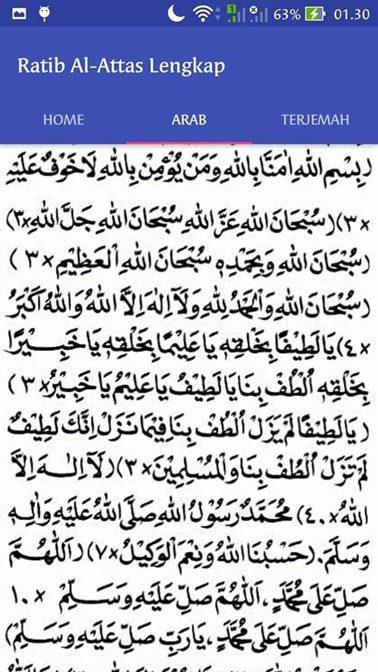 63% 01.30
Ratib Al-Attas Lengkap
HOME ARAB TERJEMAH
(بِسْمِ اللهِ اٰمَنَّا بِاللهِ وَمَنْ يُؤْمِنْ بِاللهِ لَاخَوْفٌ عَلَيْهِ
×٣) (سُبْحَانَ اللهِ عَزَّ اللهِ سُبْحَانَ اللهِ جَلَّ اللهِ ×٣)
(سُبْحَانَ اللهِ وَبِحَمْدِهِ سُبْحَانَ اللهِ الْعَظِيْمِ ×٣)
(سُبْحَانَ اللهِ وَالْحَمْدُ لِلهِ وَلَآ اِلٰهَ اِلاَّ اللهُ وَاللهُ اَكْبَرُ
×٤) يَالَطِيْفًا بِخَلْقِهِ يَاعَلِيْمًا بِخَلْقِهِ يَاخَبِيْرًا
بِخَلْقِهِ اُلْطُفْ بِنَا يَالَطِيْفُ يَاعَلِيْمُ يَاخَبِيْرُ ×٣)
(يَالَطِيْفًا لَمْ يَزَلْ اُلْطُفْ بِنَا فِيْمَا نَزَلْ اِنَّكَ لَطِيْفٌ
لَمْ تَزَلْ اُلْطُفْ بِنَا وَالْمُسْلِمِيْنَ ×٣) (لَآ اِلٰهَ اِلاَّ
اللهُ ×٤٠) مُحَمَّدٌ رَسُوْلُ اللهِ صَلَّى اللهُ عَلَيْهِ وَاٰلِهِ
وَسَلَّمَ. (حَسْبُنَا اللهُ وَنِعْمَ الْوَكِيْلُ ×٧) (اَللّٰهُمَّ
صَلِّ عَلَى مُحَمَّدٍ، اَللّٰهُمَّ صَلِّ عَلَيْهِ وَسَلِّمْ ×١٠
اَللّٰهُمَّ صَلِّ عَلَى مُحَمَّدٍ، يَارَبِّ صَلِّ عَلَيْهِ وَسَلِّمْ)